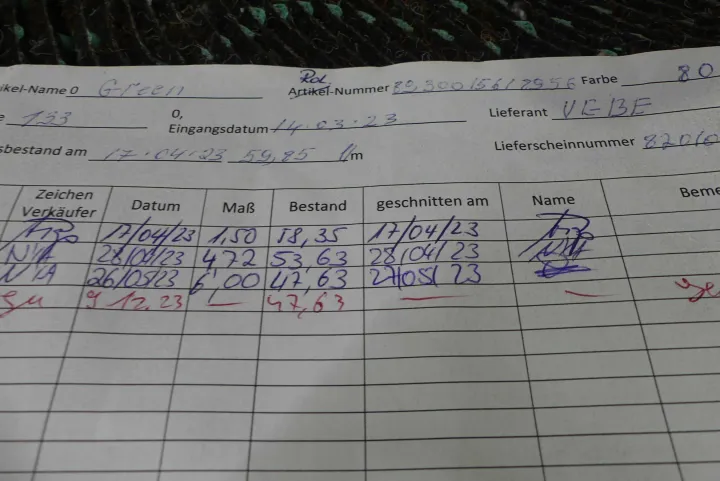 Rol.
ikel-Name 0 Green Artikel-Nummer Farbe 80
133 0, Eingangsdatum 14.03.23 Lieferant VEBE
sbestand am 17.04.23 59,85 l/m Lieferscheinnummer
Zeichen Verkäufer Datum Maß Bestand geschnitten am Name Beme
17/04/23 1,50 58,35 17/04/23
N/A 28/04/23 4,72 53,63 28/04/23 N/A
N/A 26/05/23 6,00 47,63 27/05/23
9.12.23 — 47,63 — —